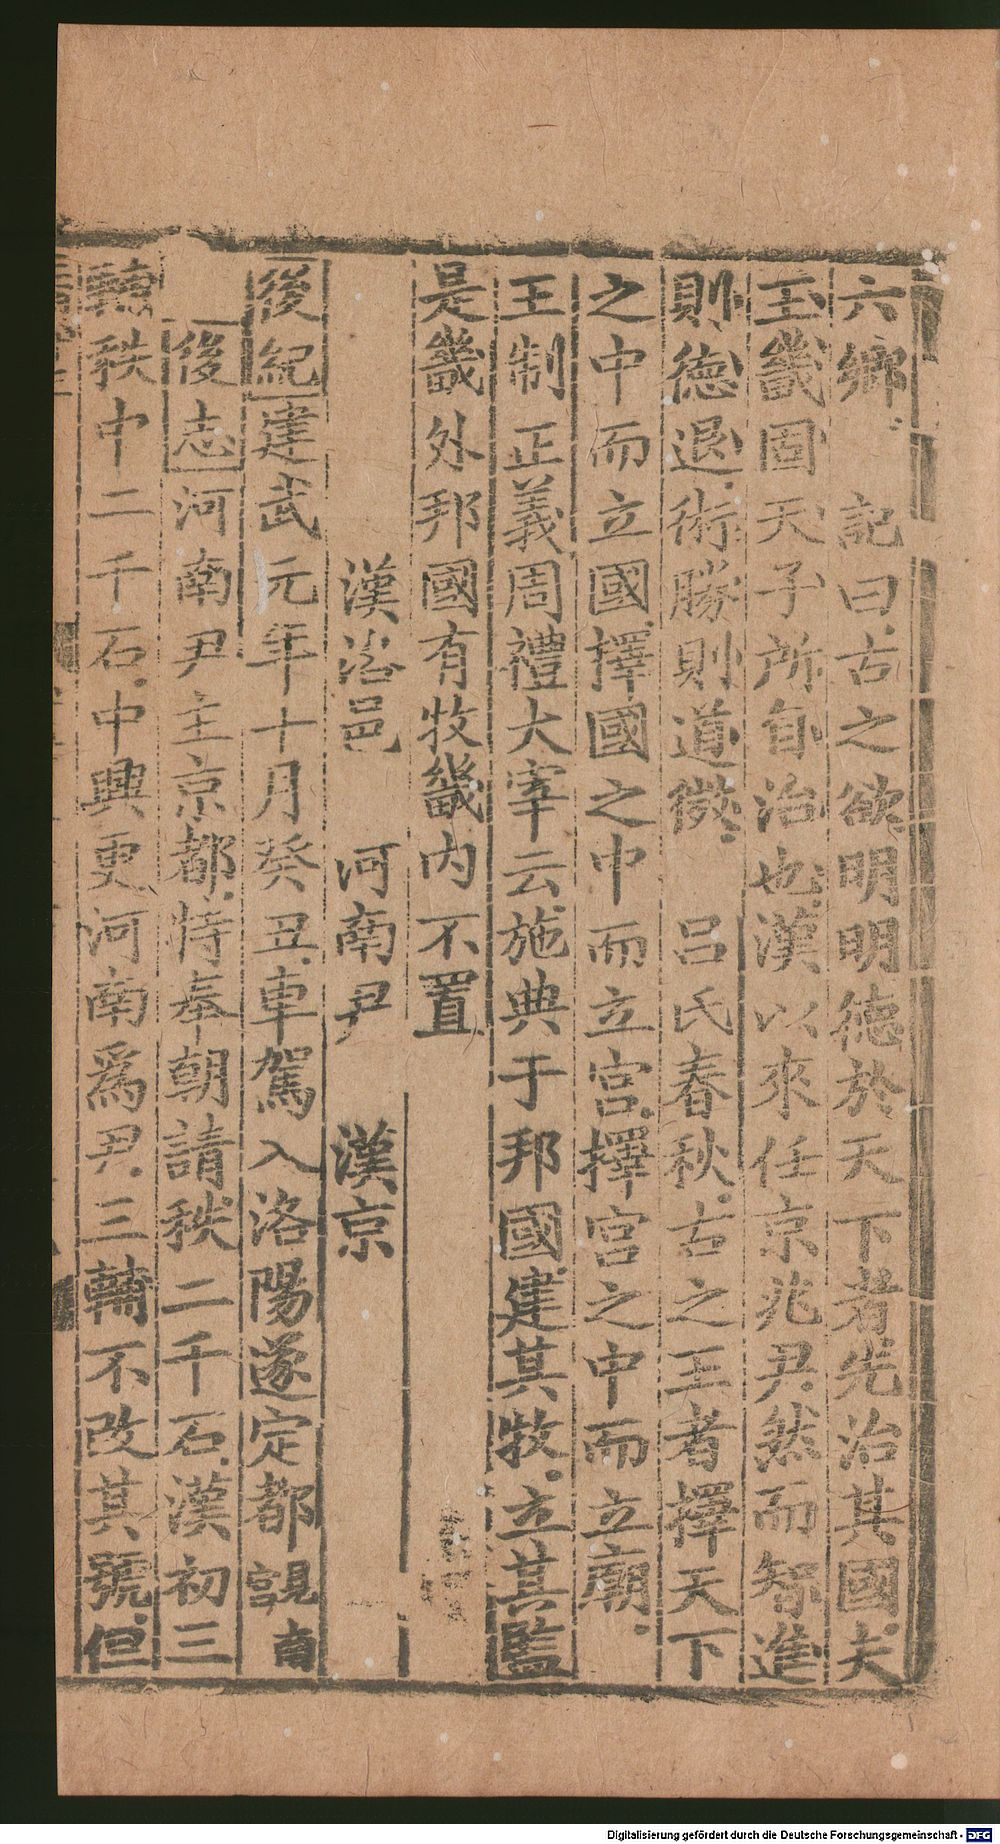 六鄉 記曰古之欲明明德於天下者先治其國夫
王畿固天子所自治也漢以來任京兆尹然而智進
則德退術勝則道微 呂氏春秋古之王者擇天下
之中而立國擇國之中而立宮擇宮之中而立廟
王制正義周禮大宰云施典于邦國建其牧立其監
是畿外邦國有牧畿內不置
漢治邑 河南尹 漢京
後紀建武元年十月癸丑車駕入洛陽遂定都 南
後志河南尹主京都特奉朝請秩二千石漢初三
輔秩中二千石中興更河南爲尹三輔不改其號但
Digitalisierung gefördert durch die Deutsche Forschungsgemeinschaft - DFG